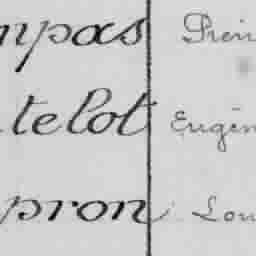 mpas Pierr
telot Eugèn
pron Lou